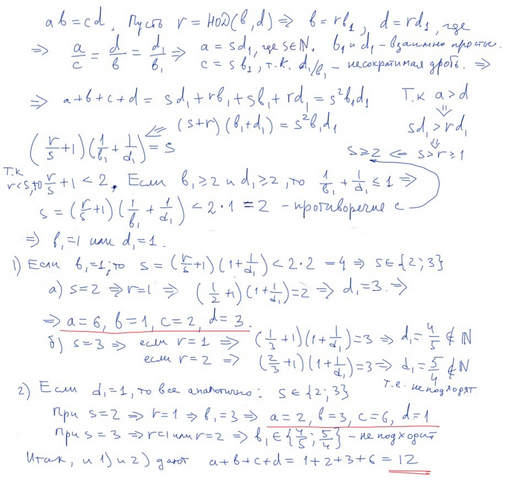 ab = cd. Пусть r = НОД(b,d) ⇒ b = rb₁, d = rd₁, где
⇒ a/c = d/b = d₁/b₁ ⇒ a = sd₁, где s∈N. b₁ и d₁ – взаимно простые.
c = sb₁, т.к. d₁/b₁ – несократимая дробь. ⇒
⇒ a+b+c+d = sd₁+rb₁+sb₁+rd₁ = s²b₁d₁
(s+r)(b₁+d₁) = s²b₁d₁
Т.к a > d
⇓
sd₁ > rd₁
⇓
s ≥ 2 ⇐ s > r ≥ 1
(r/s + 1)(1/b₁ + 1/d₁) = s ⇐
Т.к r < s, то r/s + 1 < 2. Если b₁ ≥ 2 и d₁ ≥ 2, то 1/b₁ + 1/d₁ ≤ 1 ⇒
s = (r/s + 1)(1/b₁ + 1/d₁) < 2·1 = 2 – противоречие с
⇒ b₁ = 1 или d₁ = 1.
1) Если b₁ = 1, то s = (r/s + 1)(1 + 1/d₁) < 2·2 = 4 ⇒ s ∈ {2; 3}
а) s = 2 ⇒ r = 1 ⇒ (1/2 + 1)(1 + 1/d₁) = 2 ⇒ d₁ = 3. ⇒
⇒ a = 6, b = 1, c = 2, d = 3.
б) s = 3 ⇒ если r = 1 ⇒ (1/3 + 1)(1 + 1/d₁) = 3 ⇒ d₁ = 4/5 ∉ N
если r = 2 ⇒ (2/3 + 1)(1 + 1/d₁) = 3 ⇒ d₁ = 5/4 ∉ N
т.е. не подходят
2) Если d₁ = 1, то все аналогично: s ∈ {2; 3}
При s = 2 ⇒ r = 1 ⇒ b₁ = 3 ⇒ a = 2, b = 3, c = 6, d = 1
При s = 3 ⇒ r = 1 или r = 2 ⇒ b₁ ∈ {4/5; 5/4} – не подходит
Итак, и 1) и 2) дают a+b+c+d = 1+2+3+6 = 12